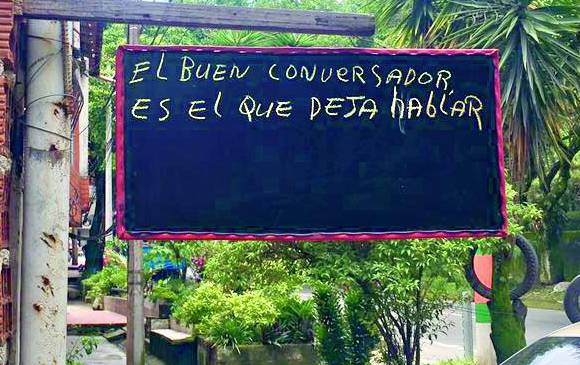 EL BUEN CONVERSADOR,
ES El QUE DEJA hAblAR